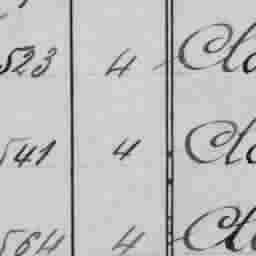 523 4 Cla
541 4 Cla
564 4 Cla